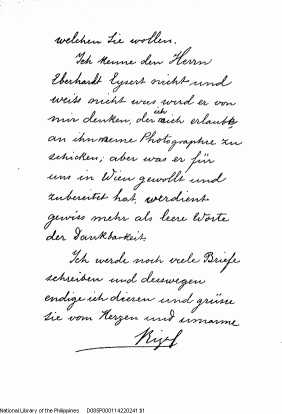 welchen Sie wollen.
Ich kenne den Herrn
Eberhardt Eysert nicht und
weiss nicht was wird er von
mir denken, der ich mich erlaubte
an ihn meine Photographie zu
schicken; aber was er für
uns in Wien gewollt und
zubereitet hat, verdient
gewiss mehr als leere Worte
der Dankbarkeit.
Ich werde noch viele Briefe
schreiben und desswegen
endige ich diesen und grüsse
Sie vom Herzen und umarme
Rizal
National Library of the Philippines D00SP000114220241 01